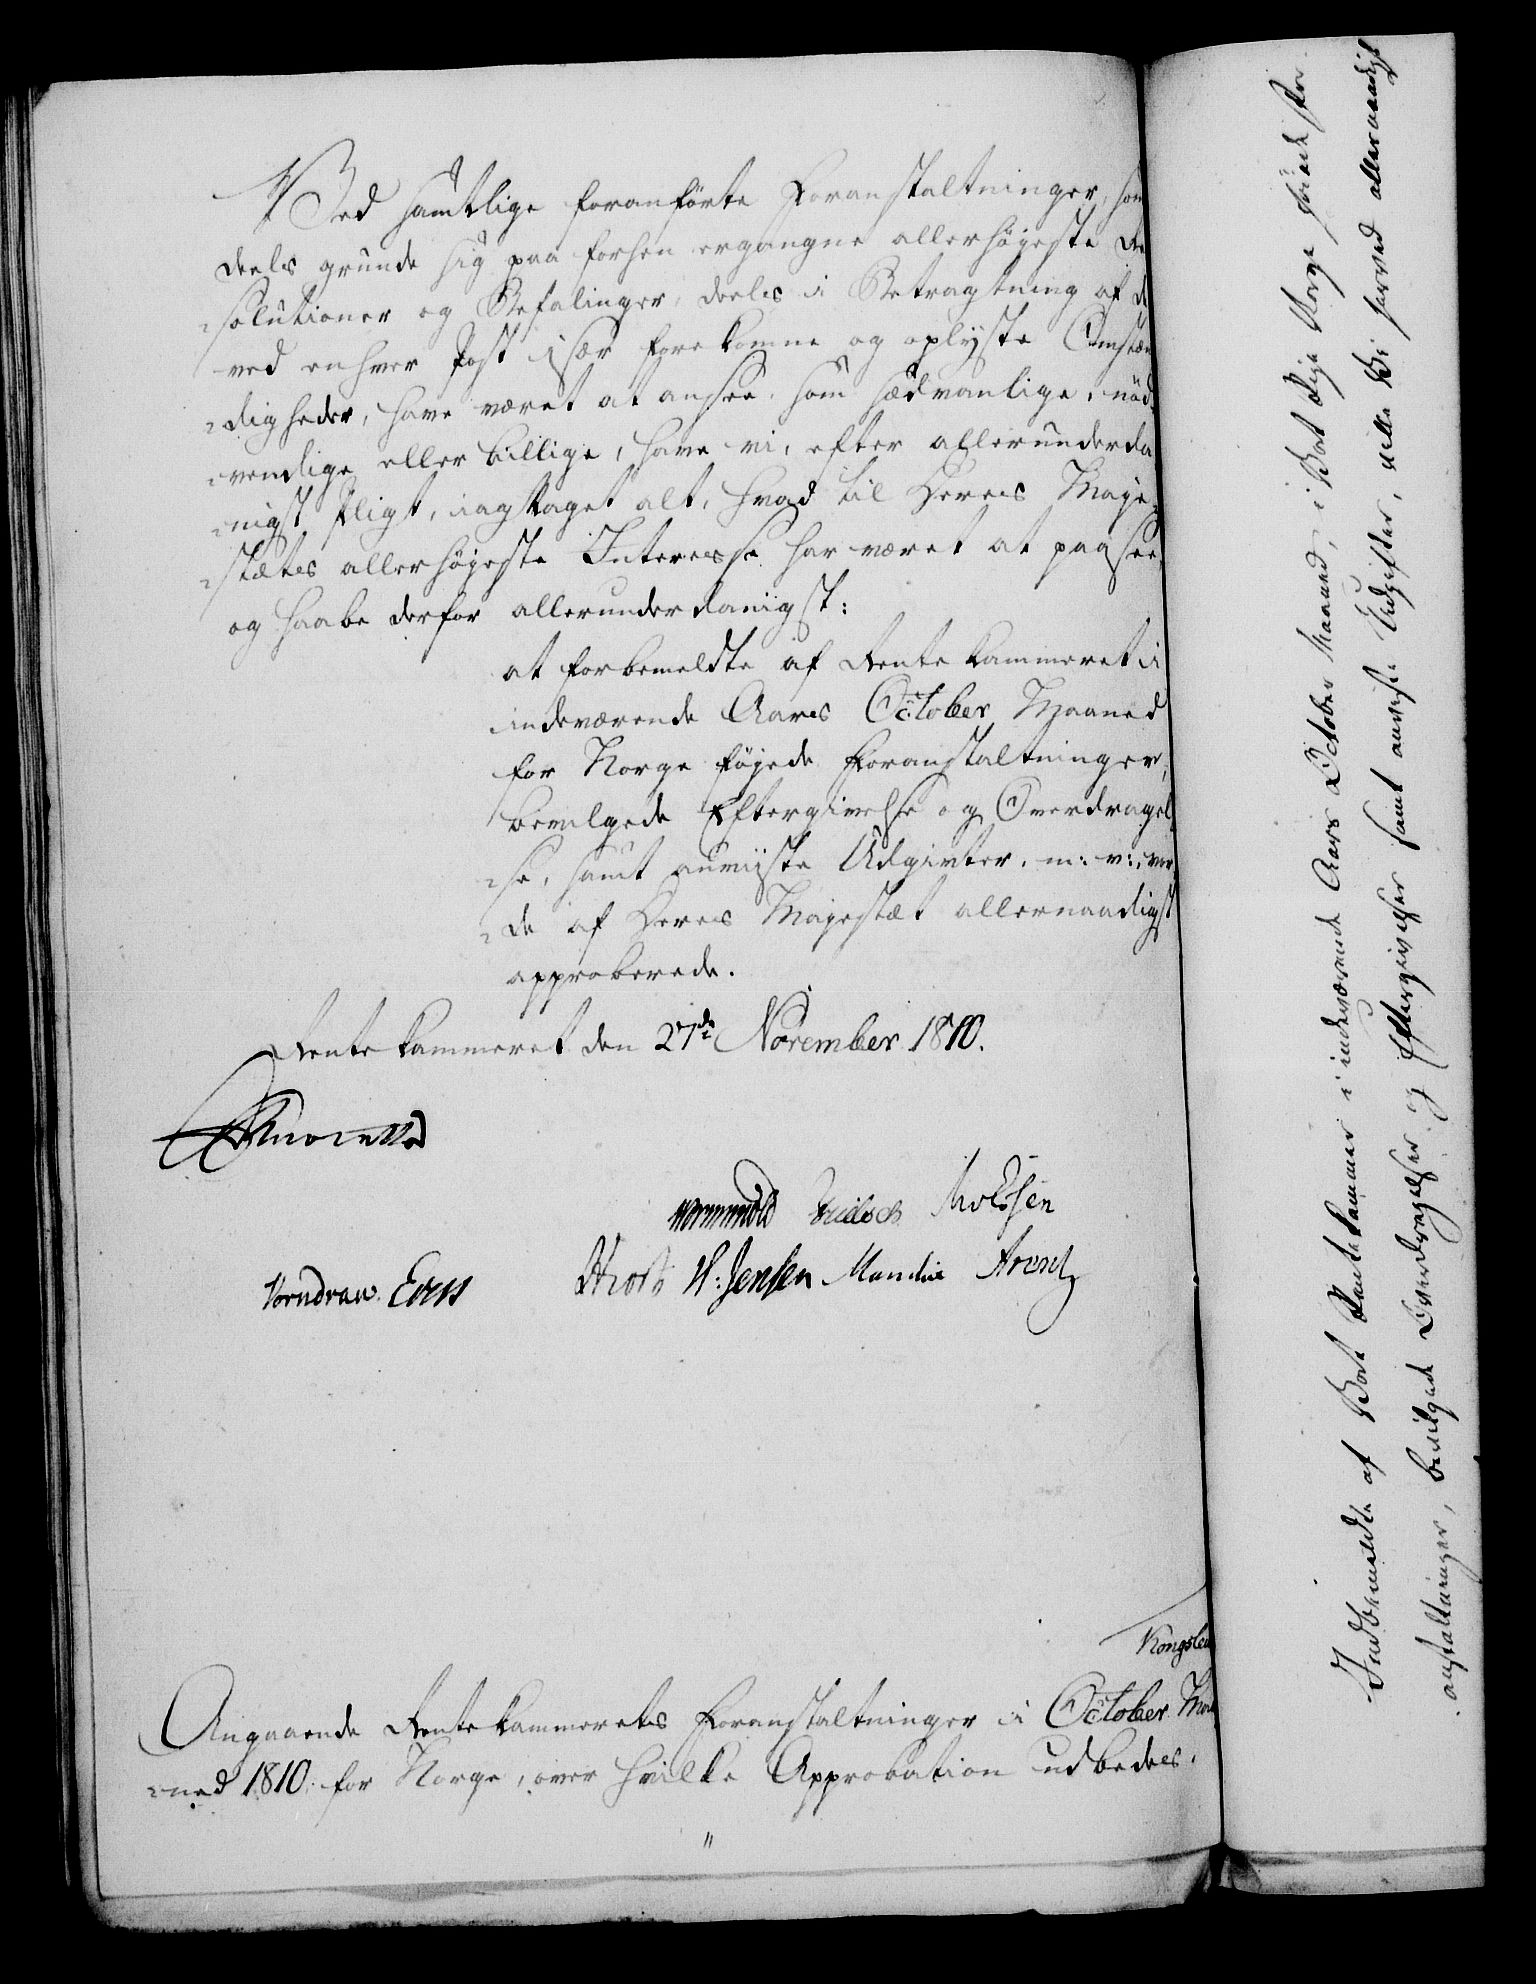 Ved samtlige foranförte Foranstaltninger, som
deels grunde sig paa forhen ergangne allerhöyeste Re
solutioner og Befalinger, deels i Betragtning af de
ved enhver Post især forekomne og oplyste Omstæn
digheder, have været at ansee, som sædvanlige, nöd-
vendige eller billige, have vi, efter allerunderda
nigst Pligt, iagttaget alt, hvad til Deres Maje-
stæts allerhöyeste Interesse har været at paasee,
og haabe derfor allerunderdanigst:
at forbemeldte af Rentekammeret i
indeværende Aars October Maaned
for Norge föyede Foranstaltninger,
bevilgede Eftergivelse og Overdragel
se, samt anviiste Udgivter, m: v:, vor
de af Deres Majestæt allernaadigst
approberede.
Rentekammeret den 27de November 1810.
Wormskiold Knudsen
Vorndran. Evers H: Jensen Arentz
Kongsber
Angaaende Rentekammerets Foranstaltninger i October Maa
ned 1810. for Norge, over hvilke Approbation udbedes.
"
Indbemeldte af Vort Rentekammer i indeværende Aars October Maaned, i Vort Rige Norge föiede For
anstaltninger, bevilgede Overdragelser og Eftergivelser samt anviiste Udgifter, ville Vi herved allernaadigst